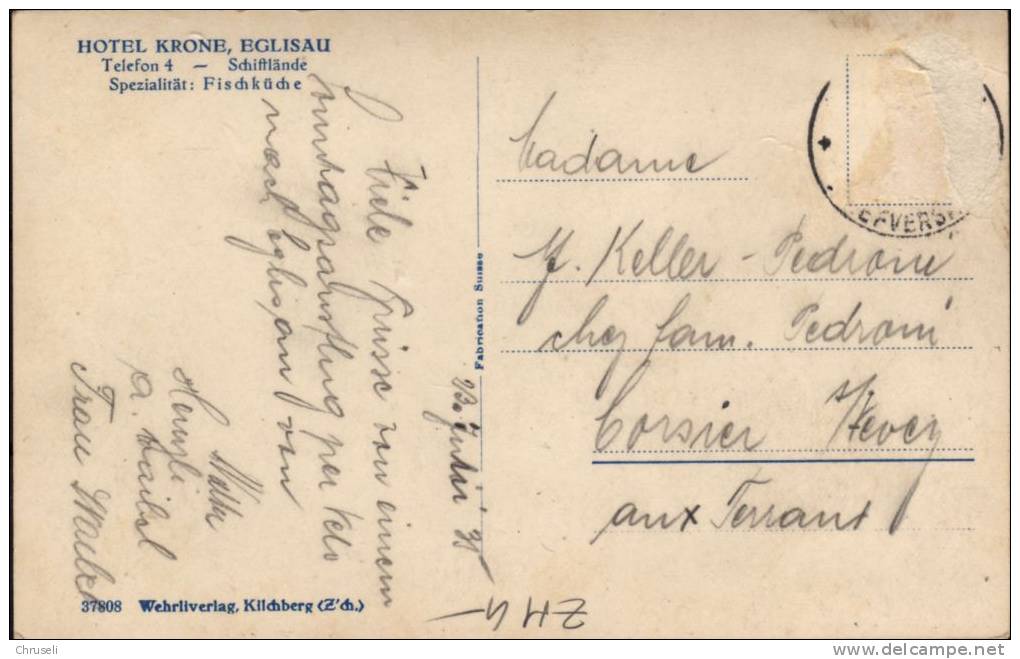 HOTEL KRONE, EGLISAU
Telefon 4 — Schifflände
Spezialität: Fischküche
23. Juli 38
Viele Grüsse von einem
Sonntagsausflug per Velo
nach Eglisau von
Walter
Hernsli
Frau Weber
Fabrication Suisse
Madame
M. Keller-Pedroni
chez fam. Pedroni
Corsier s/Vevey
aux Terraux
EFVERS
37808 Wehrliverlag, Kilchberg (Z'ch.)
ZH 4.-
Chruseli
delcampe.net